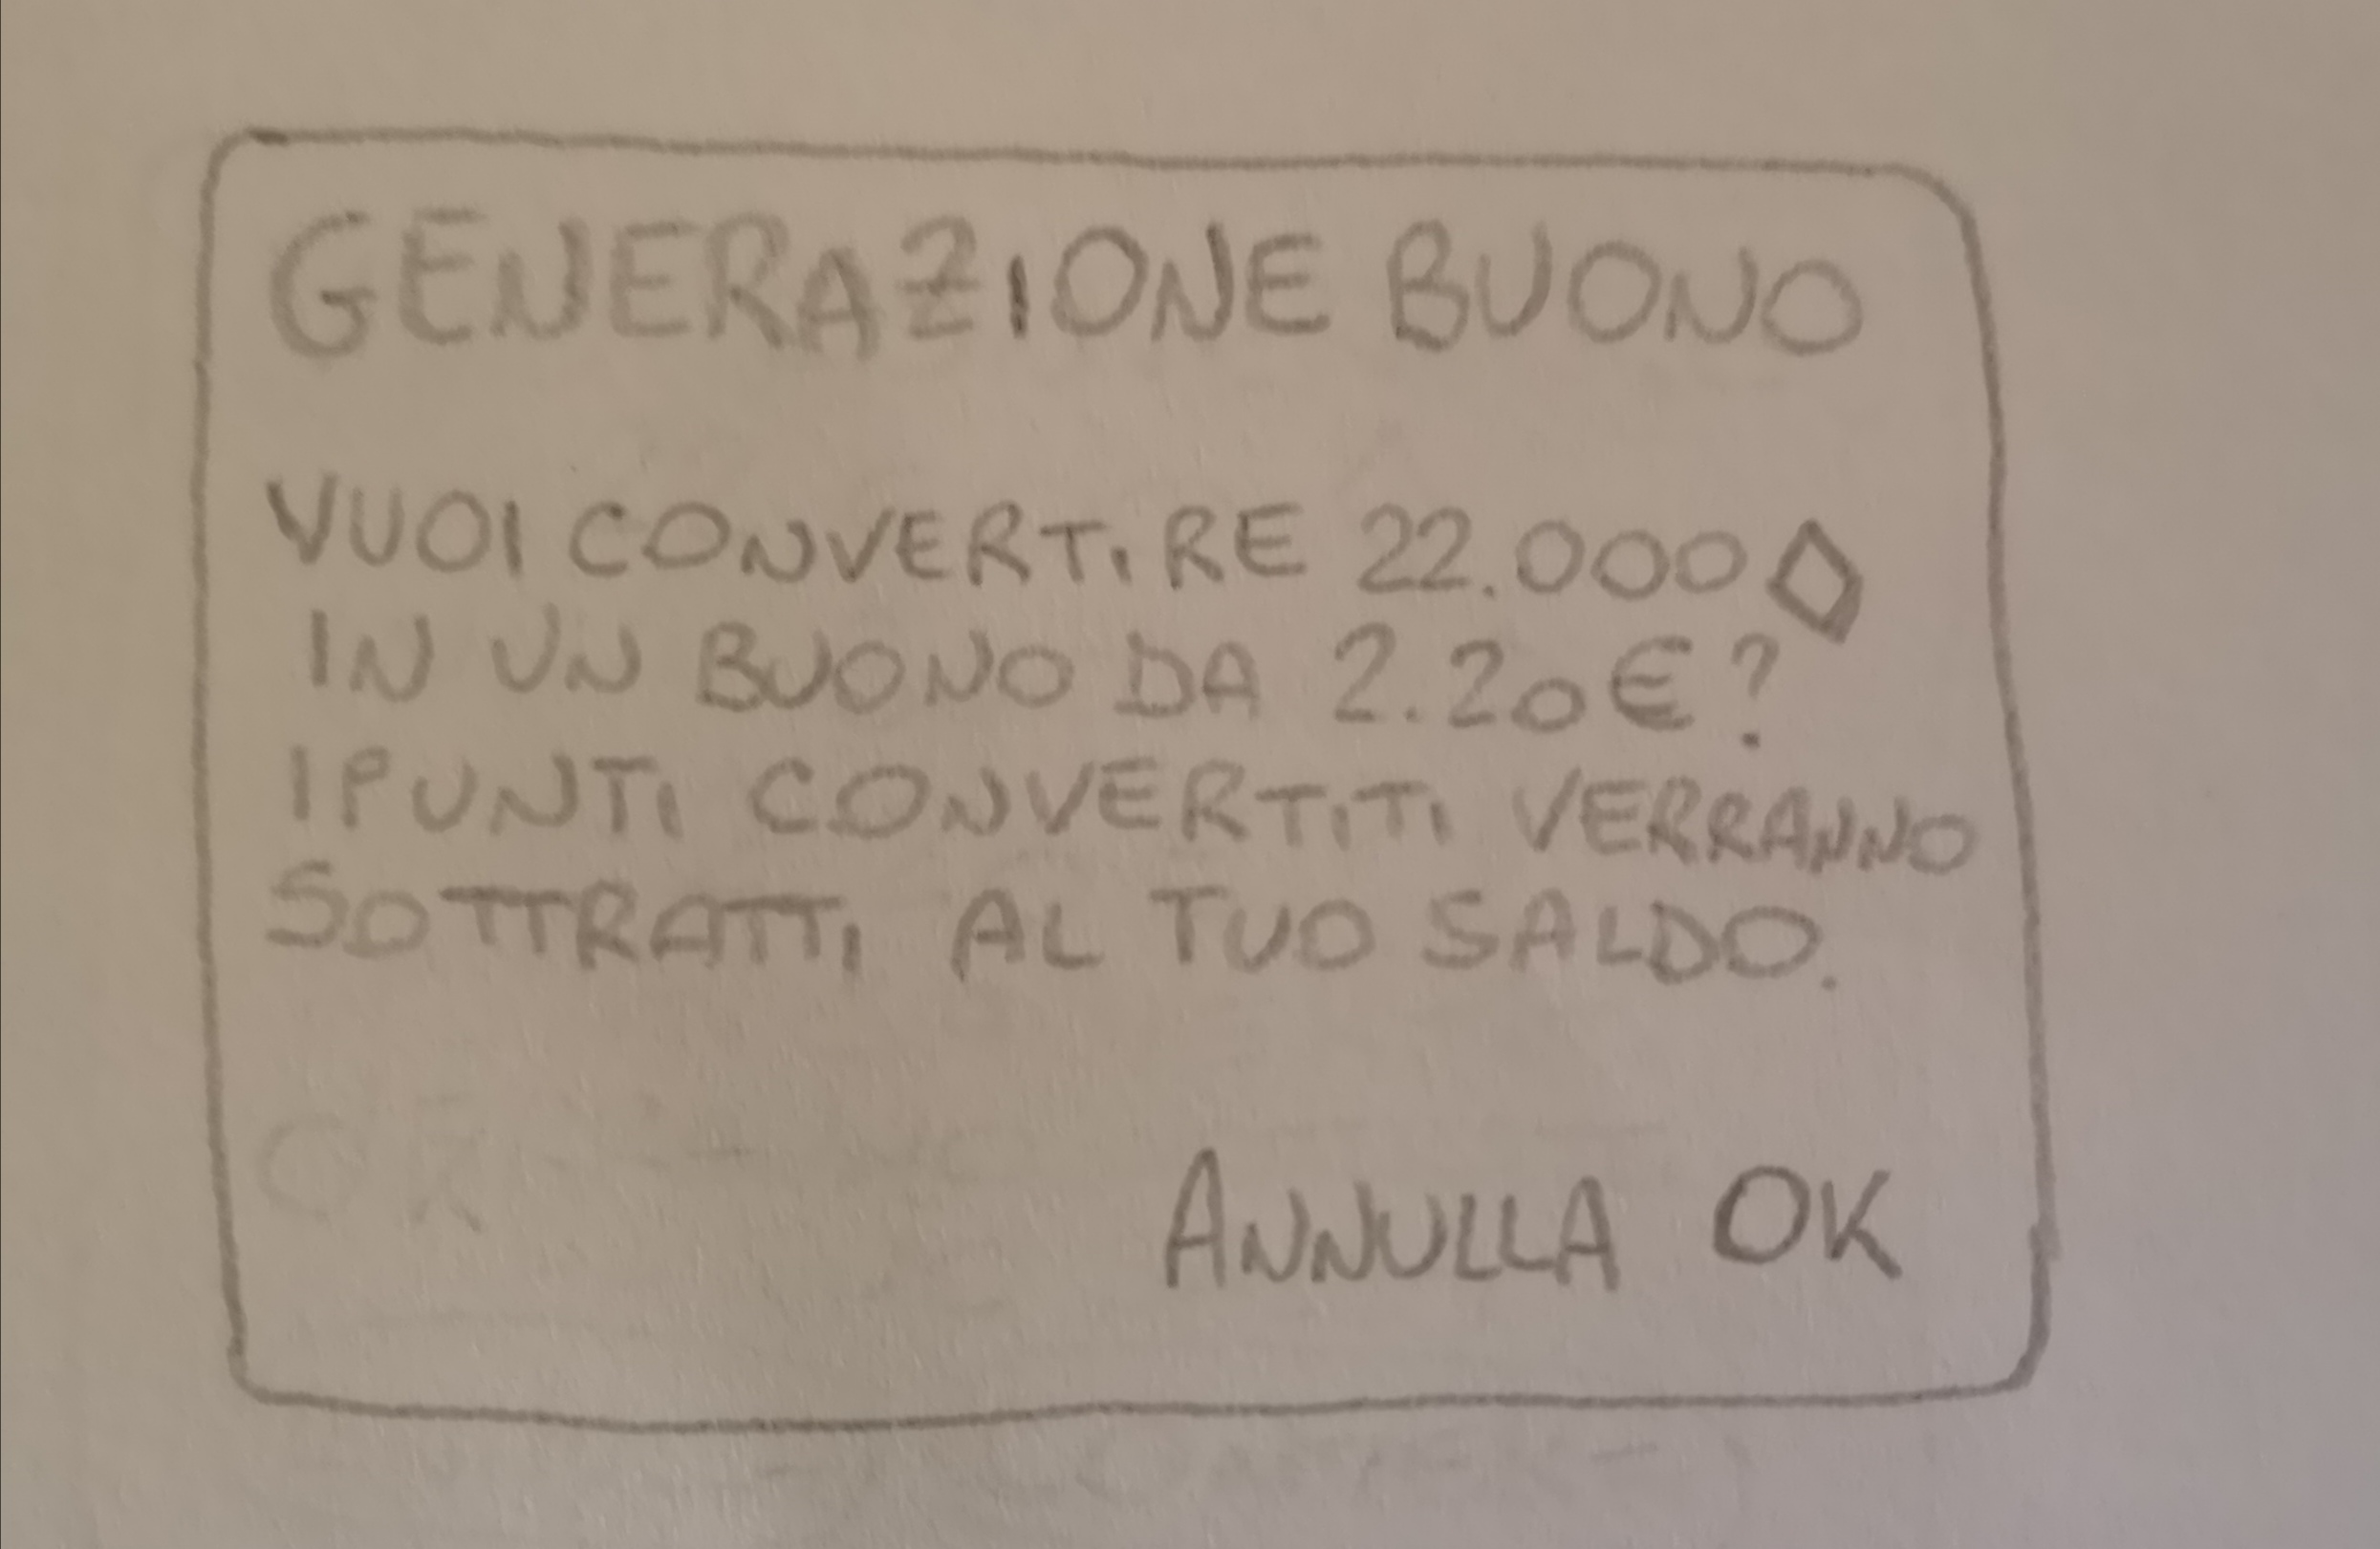 GENERAZIONE BUONO
VUOI CONVERTIRE 22.000
IN UN BUONO DA 2.20€?
I PUNTI CONVERTITI VERRANNO
SOTTRATTI AL TUO SALDO.
ANNULLA OK